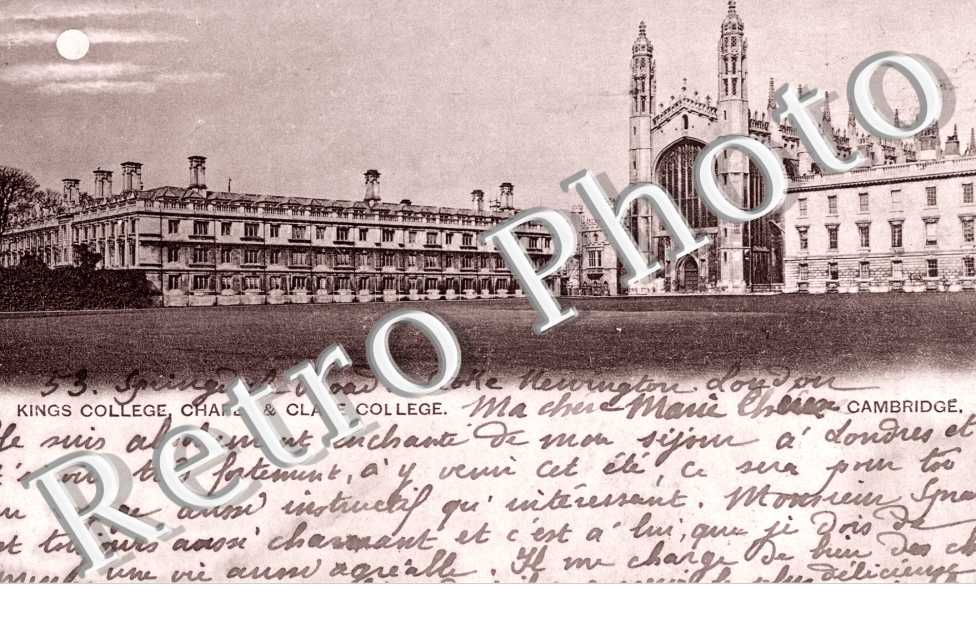 Retro Photo
53. Springdale Road Stoke Newington London
KINGS COLLEGE, CHAPEL & CLARE COLLEGE.
Ma chère Marie
CAMBRIDGE.
Je suis absolument enchanté de mon séjour à Londres et
fortement, à y venir cet été, ce sera pour toi
aussi instructif qu'intéressant. Monsieur
toujours aussi charmant et c'est à lui, que je dois de
une vie aussi agréable. Il me charge de bien des
plus délicieuse